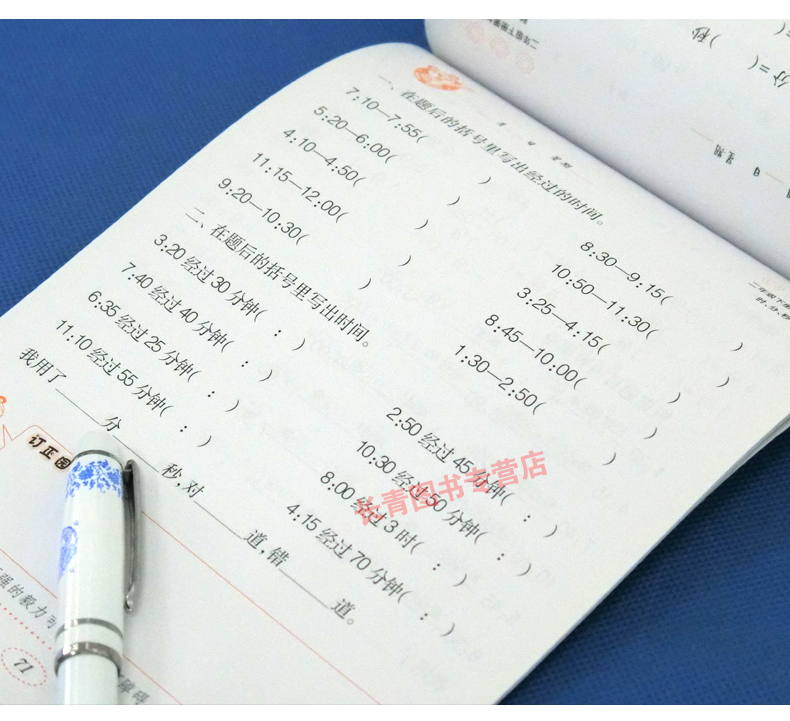 一、在题后的括号里写出经过的时间。
7:10—7:55(　) 8:30—9:15(　)
5:20—6:00(　) 10:50—11:30(　)
4:10—4:50(　) 3:25—4:15(　)
11:15—12:00(　) 8:45—10:00(　)
9:20—10:30(　) 1:30—2:50(　)
二、在题后的括号里写出时间。
3:20 经过30 分钟( : ) 2:50 经过 45 分钟( : )
7:40 经过 40 分钟( : ) 10:30 经过 50 分钟( : )
6:35 经过 25 分钟( : ) 8:00 经过 3 时( : )
11:10 经过 55 分钟( : ) 4:15 经过 70 分钟( : )
我用了____分____秒,对____道,错____道。
订正园
强的毅力可
障碍
71
长青图书专营店
二年级下册
时、分、秒
分=(　)秒